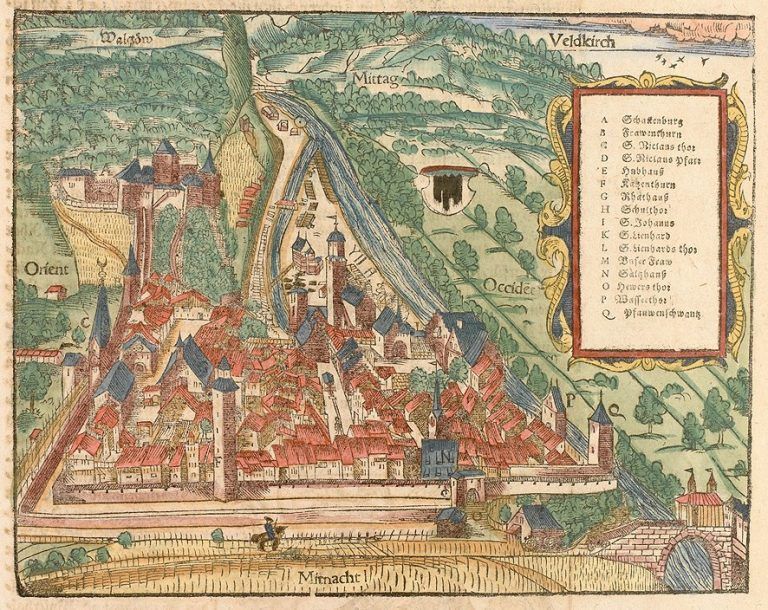 Walgöw
Veldkirch
Mittag
Orient
Occidēt
Mitnacht
A Schattenburg
B Frawenthurn
C S. Niclaus thor
D S. Niclaus Pfarr
E Hubhauß
F Katzenthurn
G Rhathauß
H Schulthor
I S. Johanns
K S. Lienhard
L S. Lienhards thor
M Unser Fraw
N Saltzhauß
O
P Wasserthor
Q Pfauwenschwantz
C
F
N
P
Q